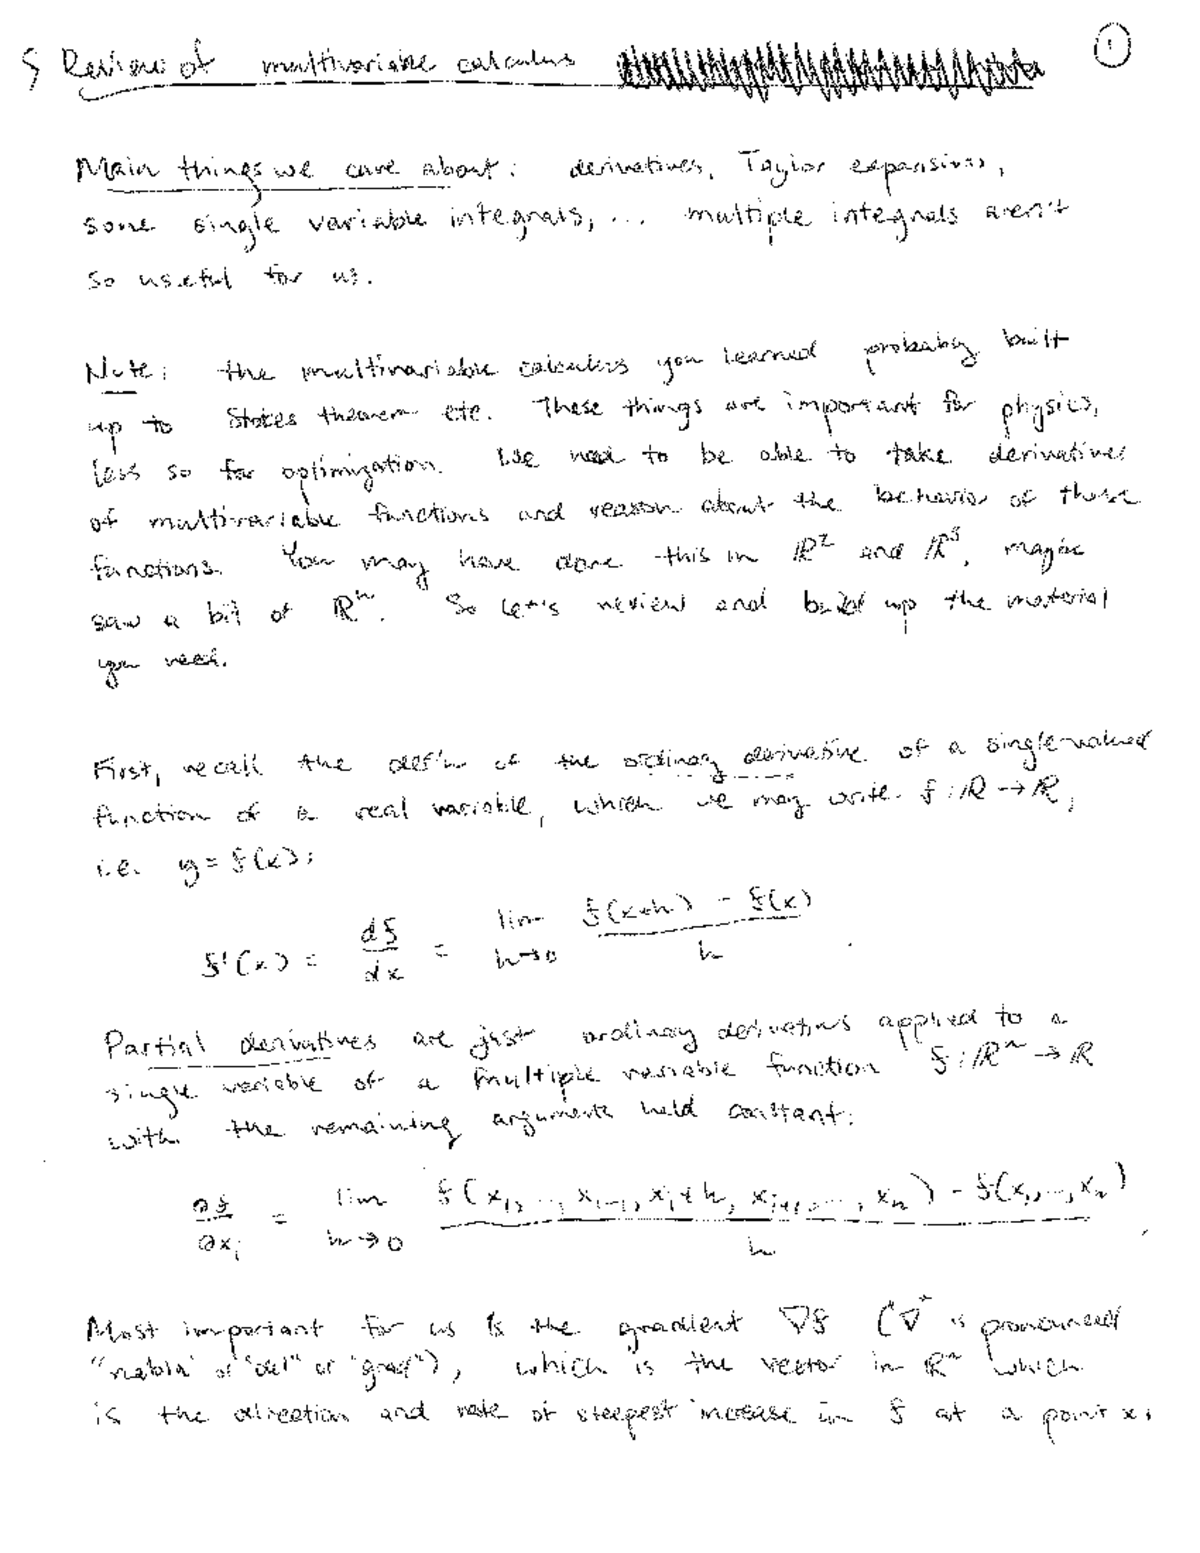 § Review of multivariable calculus
①
Main things we care about: derivatives, Taylor expansions,
some single variable integrals, ... multiple integrals aren't
so useful for us.
Note: the multivariable calculus you learned probably built
up to Stokes theorem etc. These things are important for physics,
less so for optimization. We need to be able to take derivatives
of multivariable functions and reason about the behavior of these
functions. You may have done this in ℝ² and ℝ³, maybe
saw a bit of ℝⁿ. So let's review and build up the material
you need.
First, recall the def'n of the ordinary derivative of a single-valued
function of a real variable, which we may write f : ℝ → ℝ,
i.e. y = f(x):
f'(x) = df/dx = lim h→0 (f(x+h) - f(x))/h .
Partial derivatives are just ordinary derivatives applied to a
single variable of a multiple variable function f : ℝⁿ → ℝ
with the remaining arguments held constant:
∂f/∂xᵢ = lim h→0 (f(x₁, ..., xᵢ₋₁, xᵢ+h, xᵢ₊₁, ..., xₙ) - f(x₁, ..., xₙ))/h ,
Most important for us is the gradient ∇f ("∇" is pronounced
"nabla" or "del" or "grad"), which is the vector in ℝⁿ which
is the direction and rate of steepest increase in f at a point x: